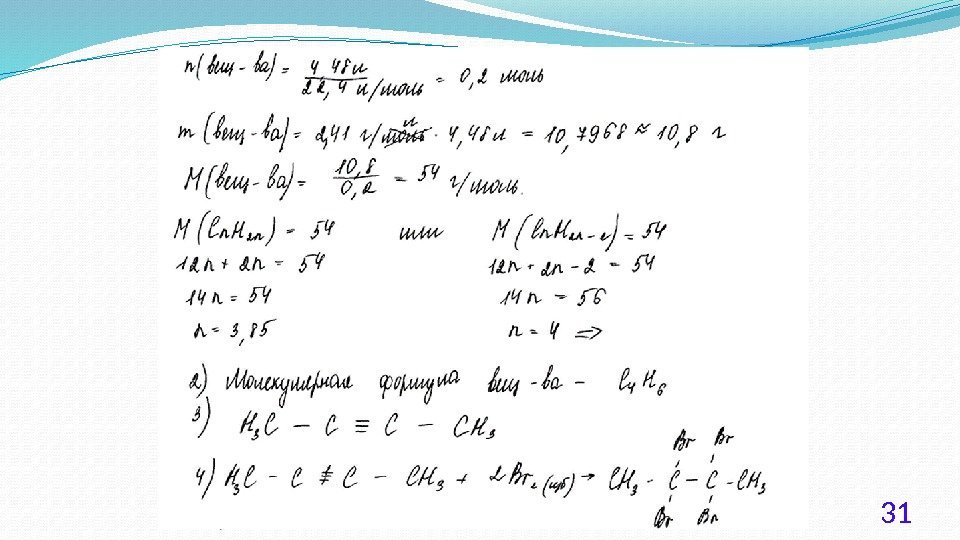 n(вещ-ва) = 4,48л / 22,4 л/моль = 0,2 моль
m(вещ-ва) = 2,41 г/л · 4,48л = 10,7968 ≈ 10,8 г
M(вещ-ва) = 10,8 / 0,2 = 54 г/моль.
M(CnH2n) = 54 или M(CnH2n-2) = 54
12n + 2n = 54 12n + 2n - 2 = 54
14n = 54 14n = 56
n = 3,85 n = 4 =>
2) Молекулярная формула вещ-ва - C4H6
3) H3C - C ≡ C - CH3
Br Br
4) H3C - C ≡ C - CH3 + 2Br2 (изб) → CH3 - C - C - CH3
Br Br
31